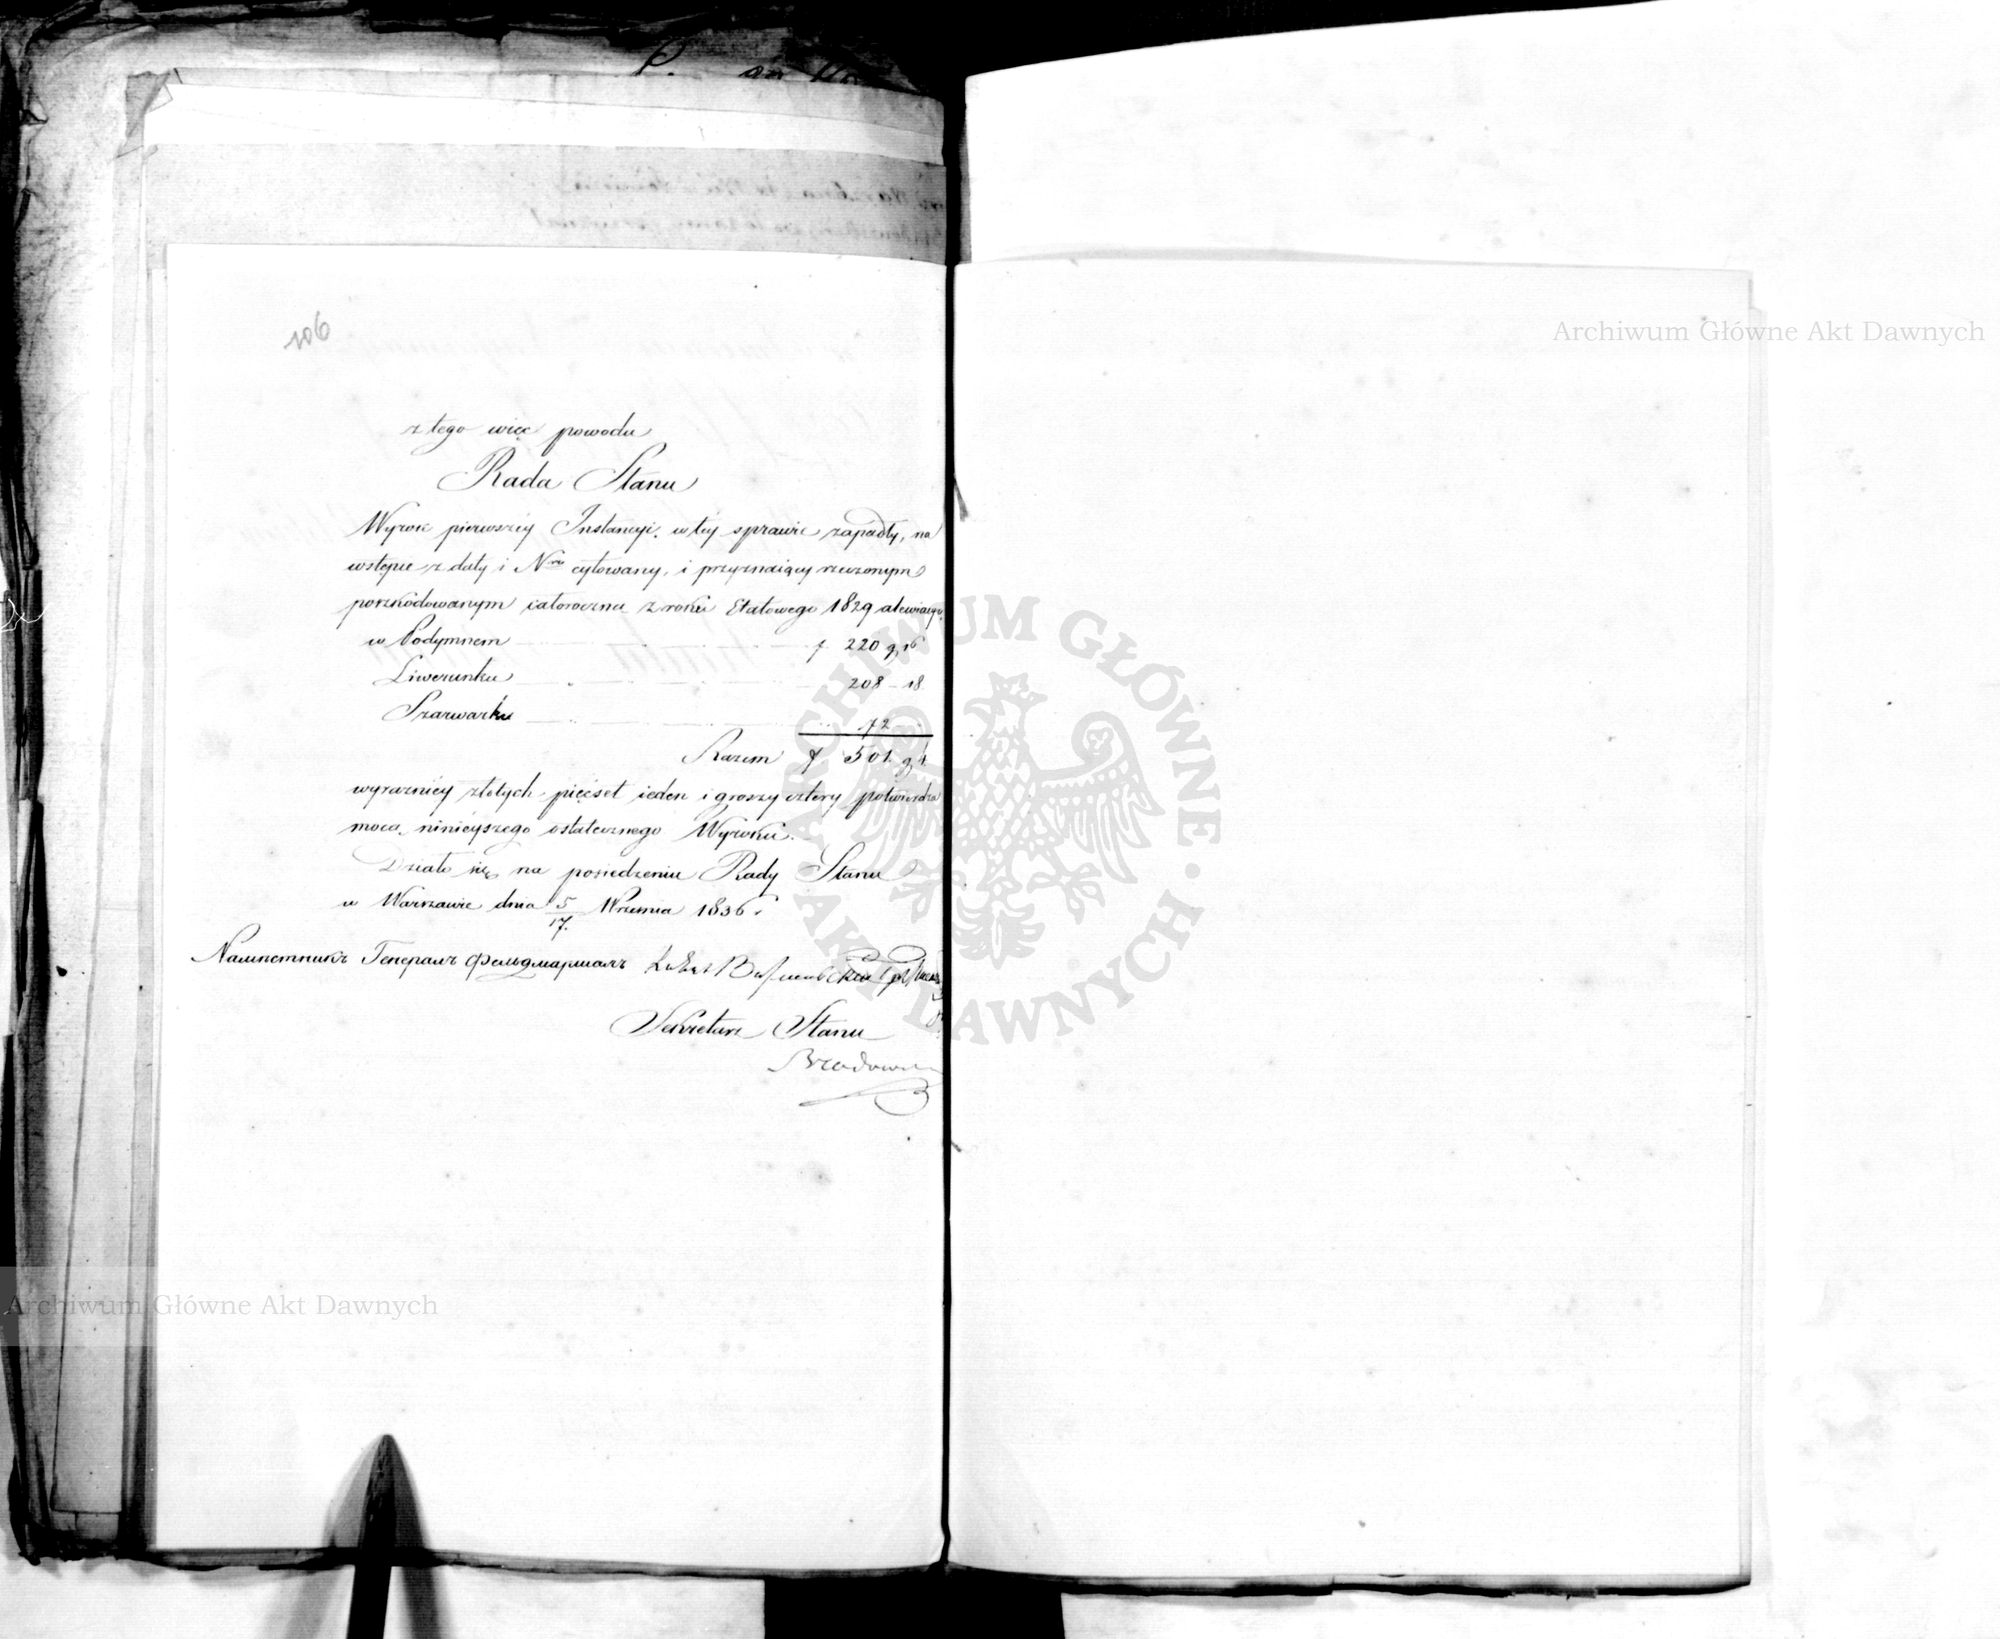 106
z tego więc powodu
Rada Stanu
Wyrok pierwszéy Instancyi, w téy sprawie zapadły, na
wstępie z daty i Nru cytowany, i przyznaiący rzeczonym
poszkodowanym całoroczną z roku Etatowego 1829 alewiacyę
w Podymnem f 220 g 16
Liwerunku " 208 – 18
Szarwarku " 72 –
Razem f 501. g 4.
wyraźniéy złotych pięćset ieden i groszy cztery potwierdza
mocą ninieyszego ostatecznego Wyroku.
Działo się na posiedzeniu Rady Stanu
w Warszawie dnia 5/17 Września 1836 r.
Намѣстникъ Генералъ Фельдмаршалъ
Sekretarz Stanu
Archiwum Główne Akt Dawnych
ARCHIWUM GŁÓWNE AKT DAWNYCH
Archiwum Główne Akt Dawnych